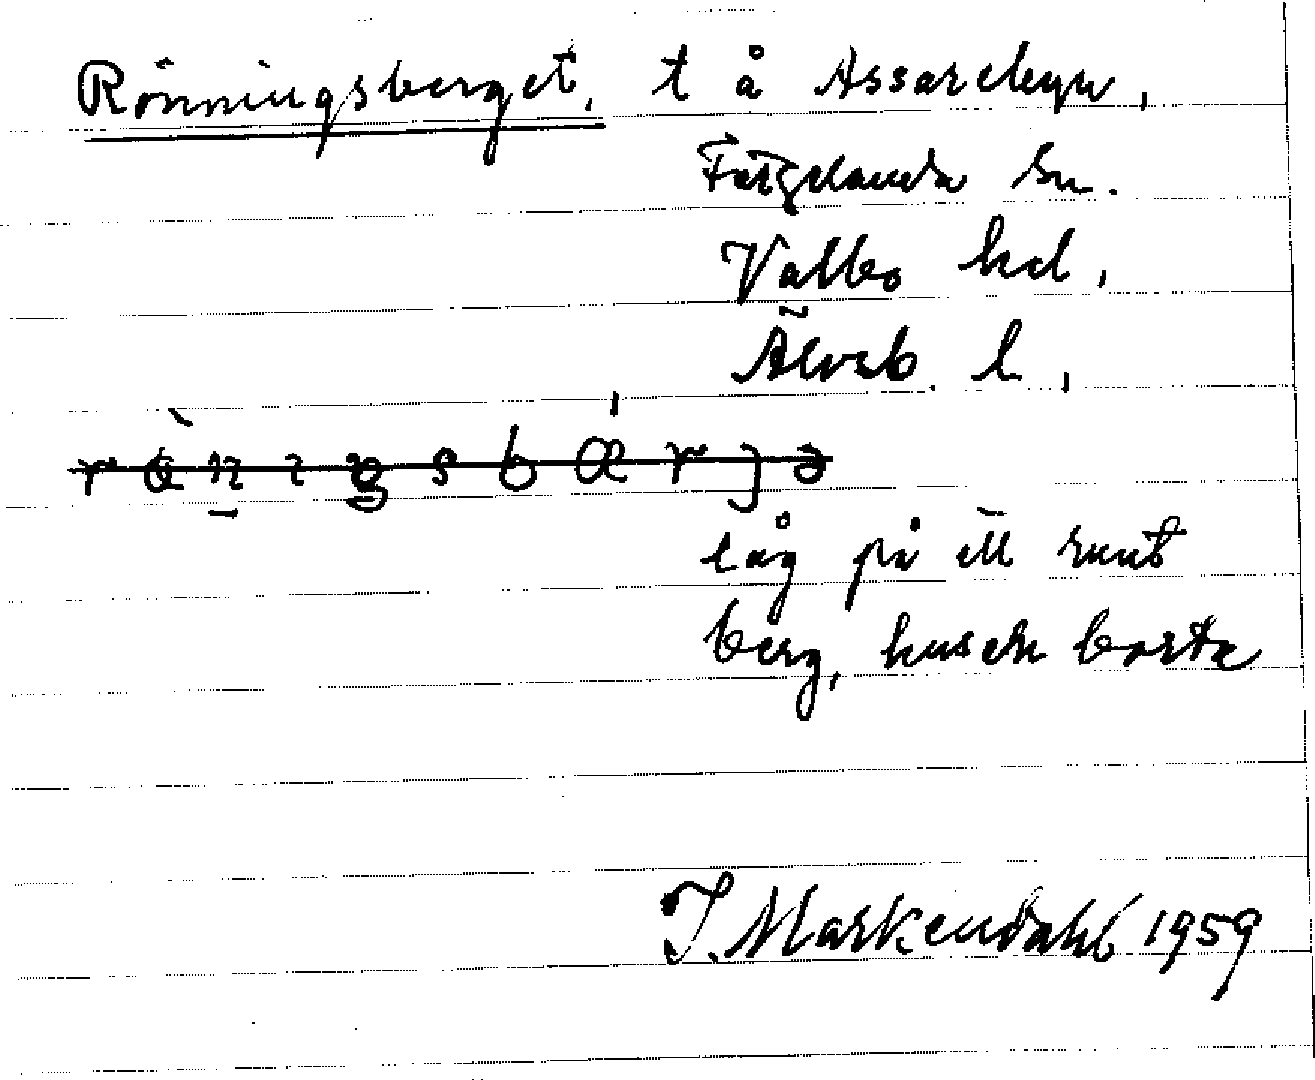 Rönningsberget, t å Assarebyn,
Färgelanda sn.
Valbo hd,
Älvsb. l,
låg på ett runt
berg, husen borta
J. Markendahl 1959